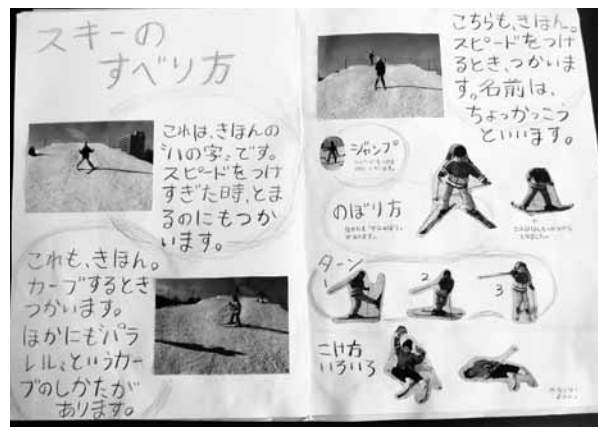 スキーの
すべり方
これは、きほんの
「ハの字」です。
スピードをつけ
すぎた時、とま
るのにもつか
います。
これも、きほん。
カーブするとき
つかいます。
ほかにも「パラ
レル」というカー
ブのしかたが
あります。
こちらも、きほん。
スピードをつけ
るとき、つかいま
す。名前は、
ちょっかっこう
といいます。
ジャンプ
のぼり方
ターン
1
2
3
こけ方
いろいろ